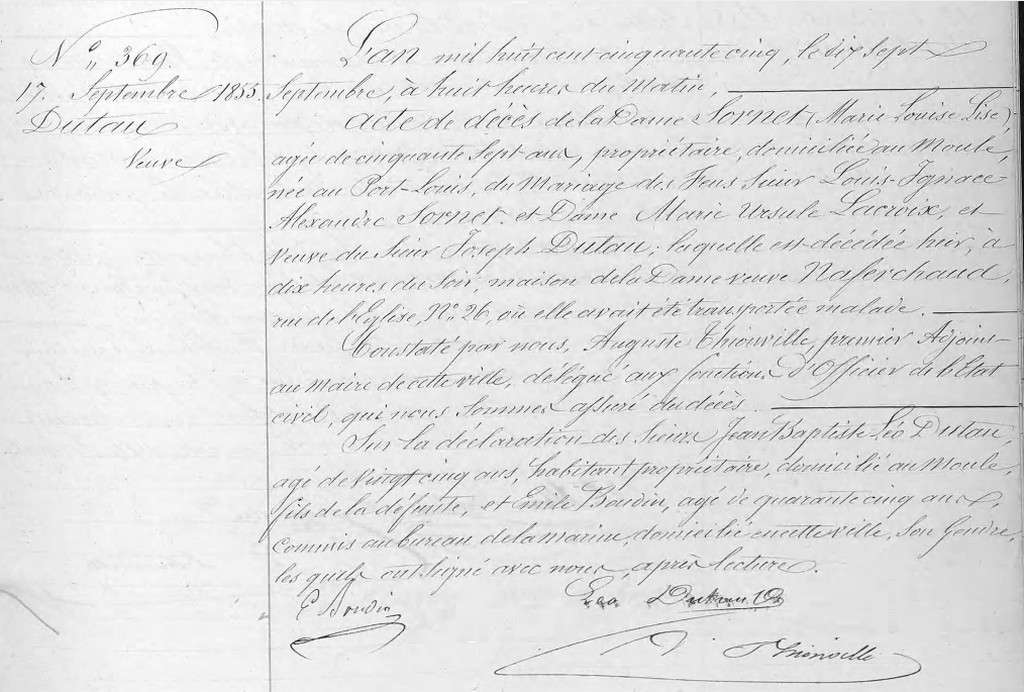 N° 369.
17. Septembre 1855.
Dutau
Veuve
L'an mil huit cent cinquante cinq, le dix Sept
Septembre, à huit heures du Matin,
acte de décès de la Dame Sornet (Marie Louise Lise)
agée de cinquante Sept ans, propriétaire, domiciliée au Moule,
née au Port-Louis, du Mariage des Feus Sieur Louis Ignace
Alexandre Sornet et Dame Marie Ursule Lacroix, et
Veuve du Sieur Joseph Dutau; laquelle est décédée hier, à
dix heures du Soir, maison de la Dame veuve Naferchaud,
rue de l'Eglise, N° 26, où elle avait été transportée malade.
Constaté par nous, Auguste Thionville, premier Adjoint
au Maire de cette ville, délégué aux fonctions d'Officier de l'Etat
civil, qui nous Sommes assuré du décès.
Sur la déclaration des Sieurs Jean Baptiste Léo Dutau,
agé de vingt cinq ans, habitant propriétaire, domicilié au Moule,
fils de la défunte, et Emile Boudin, agé de quarante cinq ans,
Commis au bureau de la marine, domicilié en cette ville, Son Gendre,
les quels ont Signé avec nous, après lecture.
E Boudin
Léo Dutau
Thionville